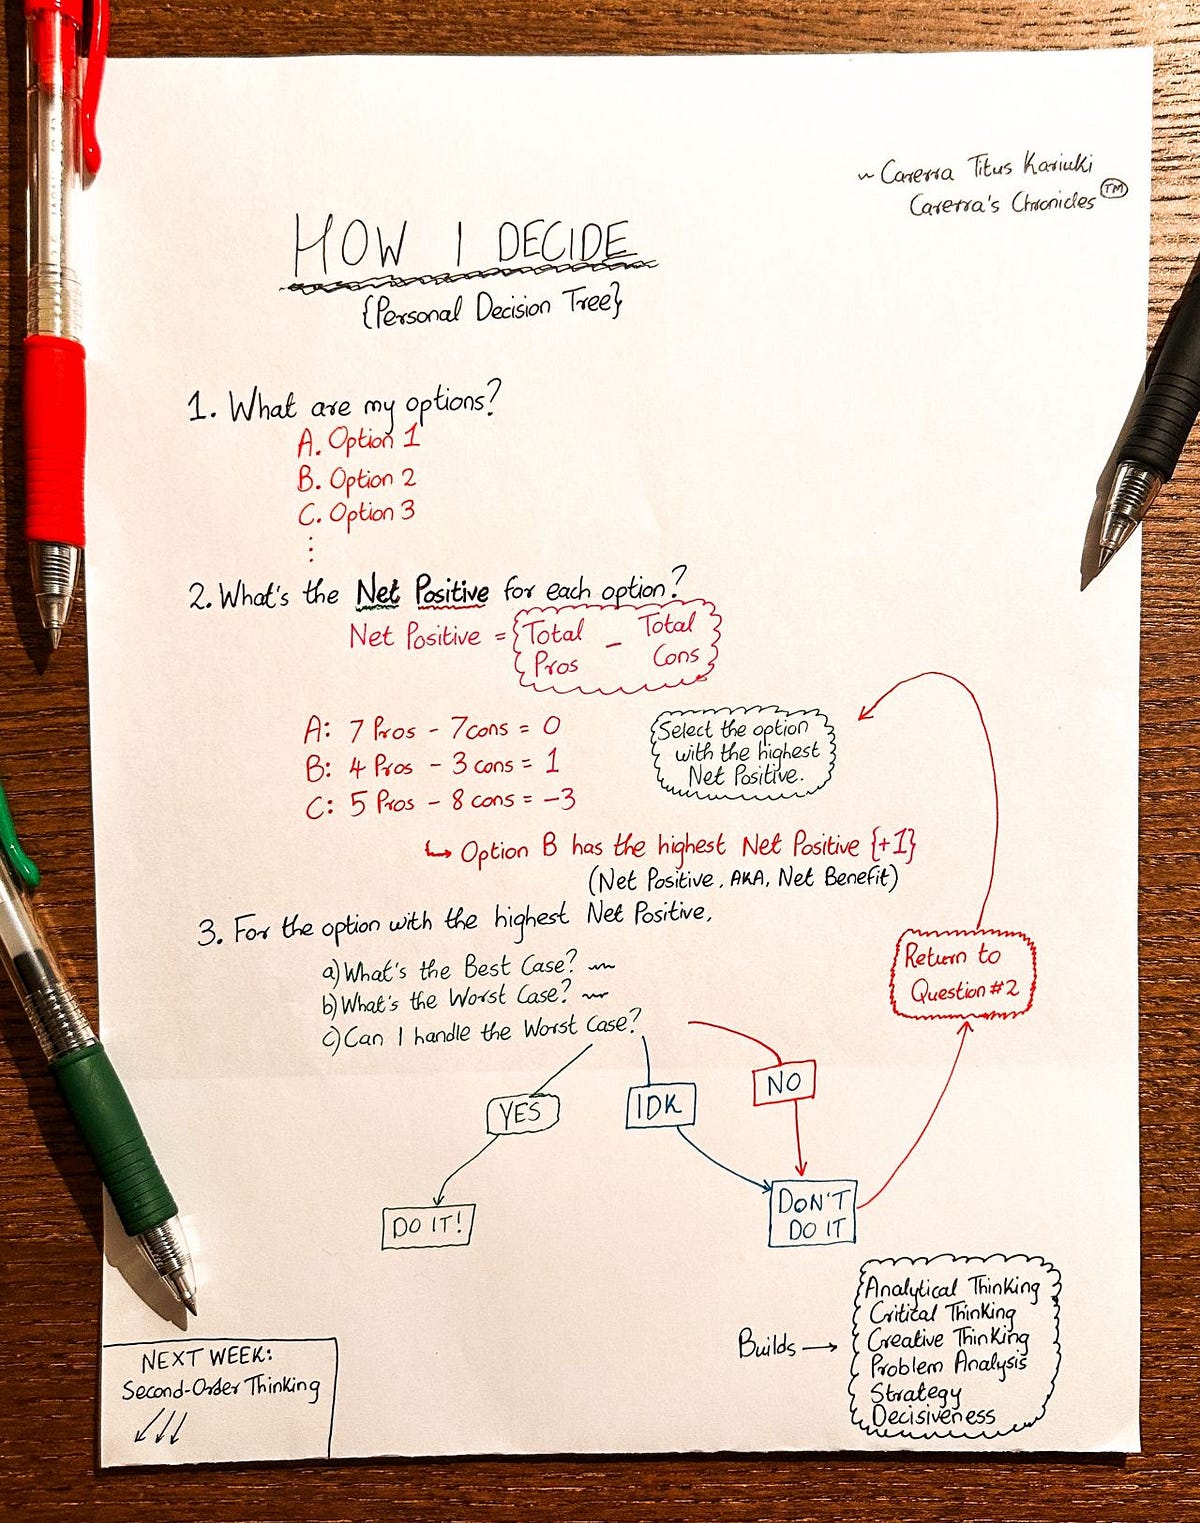 ~ Carerra Titus Kariuki
Carerra's Chronicles ™
HOW I DECIDE
{Personal Decision Tree}
1. What are my options?
A. Option 1
B. Option 2
C. Option 3
⋮
2. What's the Net Positive for each option?
Net Positive = {Total Pros - Total Cons}
A: 7 Pros - 7 cons = 0
B: 4 Pros - 3 cons = 1
C: 5 Pros - 8 cons = -3
Select the option
with the highest
Net Positive.
↳ Option B has the highest Net Positive {+1}
(Net Positive, AKA, Net Benefit)
3. For the option with the highest Net Positive,
a) What's the Best Case? ~
b) What's the Worst Case? ~
c) Can I handle the Worst Case?
Return to
Question #2
YES
IDK
NO
DO IT!
DON'T
DO IT
Builds →
Analytical Thinking
Critical Thinking
Creative Thinking
Problem Analysis
Strategy
Decisiveness
NEXT WEEK:
Second-Order Thinking